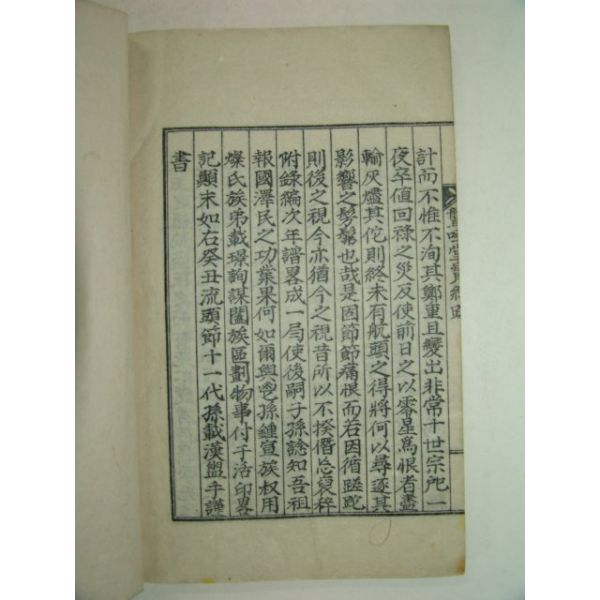 計而不惟不洵其鄭重且變出非常十世宗祀一
夜卒値回祿之災反使前日之以零星爲恨者盡
輸灰燼其佗則終未有航頭之得將何以尋逐其
影響之髣髴也哉是固節節痛恨而若因循蹉跎
則後之視今亦猶今之視昔所以不揆僭忘裒稡
附錄編次年譜畧成一局使後嗣子孫諗知吾祖
報國澤民之功業果何如爾與孫鍾宣族權用
燦氏族弟載璟詢謀闔族區劃物事付于活印畧
記顚末如右癸丑流頭節十一代孫載漢盥手謹
書
堂實紀跋